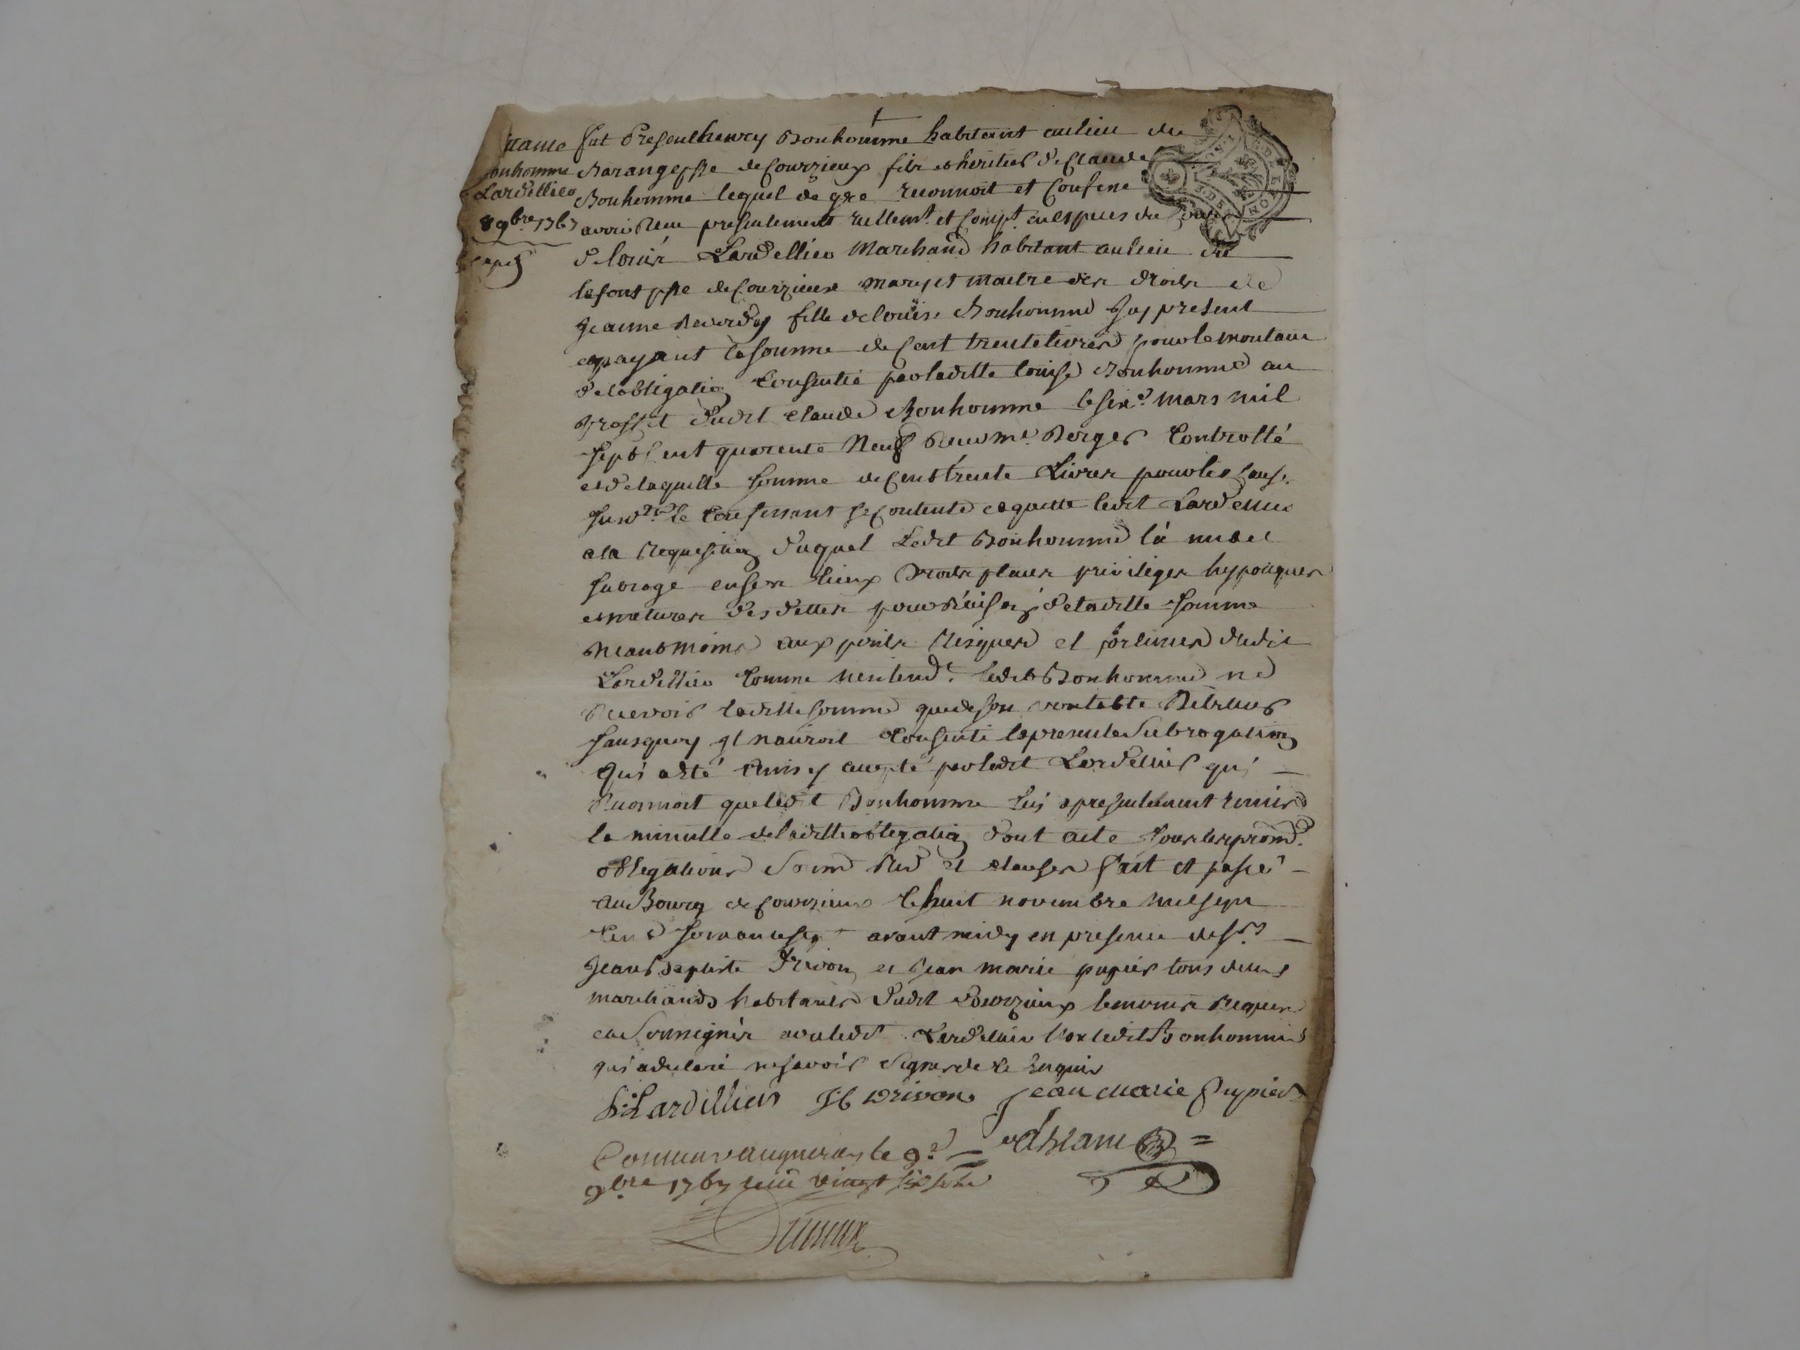 fut Present henry Bonhomme habitant au lieu du
onhomme Barange psse de Courzieux fils et heritier de Claude
Lardellier Bonhomme lequel de gre reconnoit et Confesse
8 9bre 1767 avoir Receu presentement reellemt. et Compt. en especes du Cours
de Louis Lardellier Marchand habitant au lieu du
lafont psse de Courzieux mary et maitre des droits de
Jeanne fille de Louise Bonhomme Icy present
et payant la somme de Cent trente livres pour le montant
de lobligation Consentie par laditte louise Bonhomme au
proffit dudit Claude Bonhomme le six mars mil
sept Cent quarente Neuf Receu Me. Berger Controllé
et de laquelle somme de Cent trente Livres pour les Causes
susd. le Confessant se Contente et quitte ledit Lardellier
a la Requisition duquel Ledit Bonhomme la mis et
subrogé en ses lieux droits places privileges hypoteques
et natures de dettes pour de laditte somme
Neantmoins aux perils Risques et fortunes dudit
Lardellier Comme nentend. ledit Bonhomme ne
Recevoir laditte somme que de son veritable Debiteur
sans quoy il nauroit Consenti la presente Subrogation
qui a eté ainsy accepté par ledit Lardellier qui
Reconnoit que ledit Bonhomme luy a presentement remis
la minutte de laditte obligation dont acte sous les prom.
obligations et clauses fait et passé
au Bourg de Courzieux le huit novembre mil sept
Cent soixante sept avant midy en presence de sr.
Jean Baptiste Drivon et Jean Marie pupier tous deux
marchands habitants dudit Courzieux temoins Requis
et Soussignés avec ledit Lardellier Non ledit Bonhomme
qui a declaré ne sçavoir signer de ce Enquis
L: Lardellier JB Drivon Jean Marie Pupier
Controllé a le 9e.
9bre 1767 reçu vingt six sols